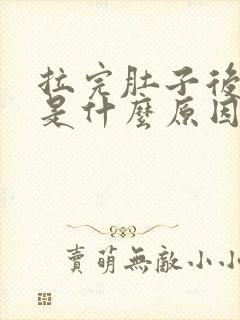 拉完肚子後
是什麼原因
賣萌無敵小小